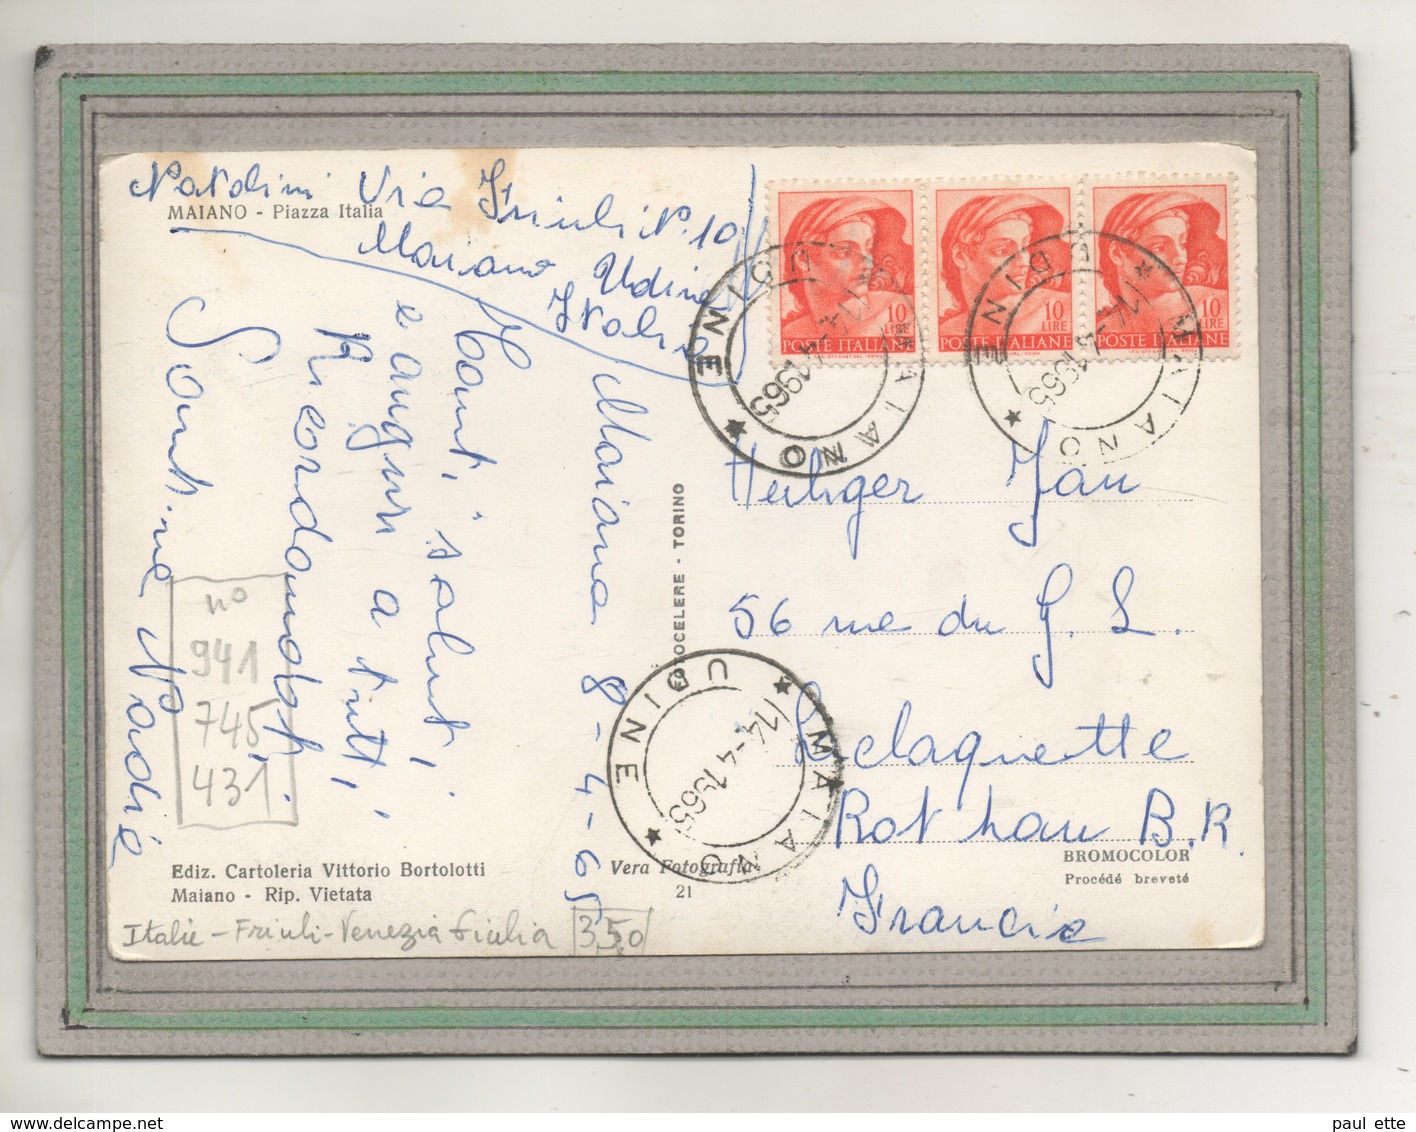 Natolini Via Friuli N. 10
MAIANO - Piazza Italia
Maiano Udine
Italie
Maiano 8-4-65
Tanti saluti
e auguri a tutti,
Ricordandoti,
Santina Nadie
10 LIRE
POSTE ITALIANE
10 LIRE
POSTE ITALIANE
10 LIRE
POSTE ITALIANE
MAIANO * UDINE *
14-4 1965
MAIANO * UDINE *
14-4 1965
MAIANO * UDINE *
14-4 1965
FOTOCELERE - TORINO
Heiliger Jan
56 rue du G. L.
Leclaquette
Rothau B.R.
Francie
no
941
745
431
Ediz. Cartoleria Vittorio Bortolotti
Maiano - Rip. Vietata
Vera Fotografia
21
BROMOCOLOR
Procédé breveté
Italie - Friuli-Venezia Giulia 3,50
paul ette